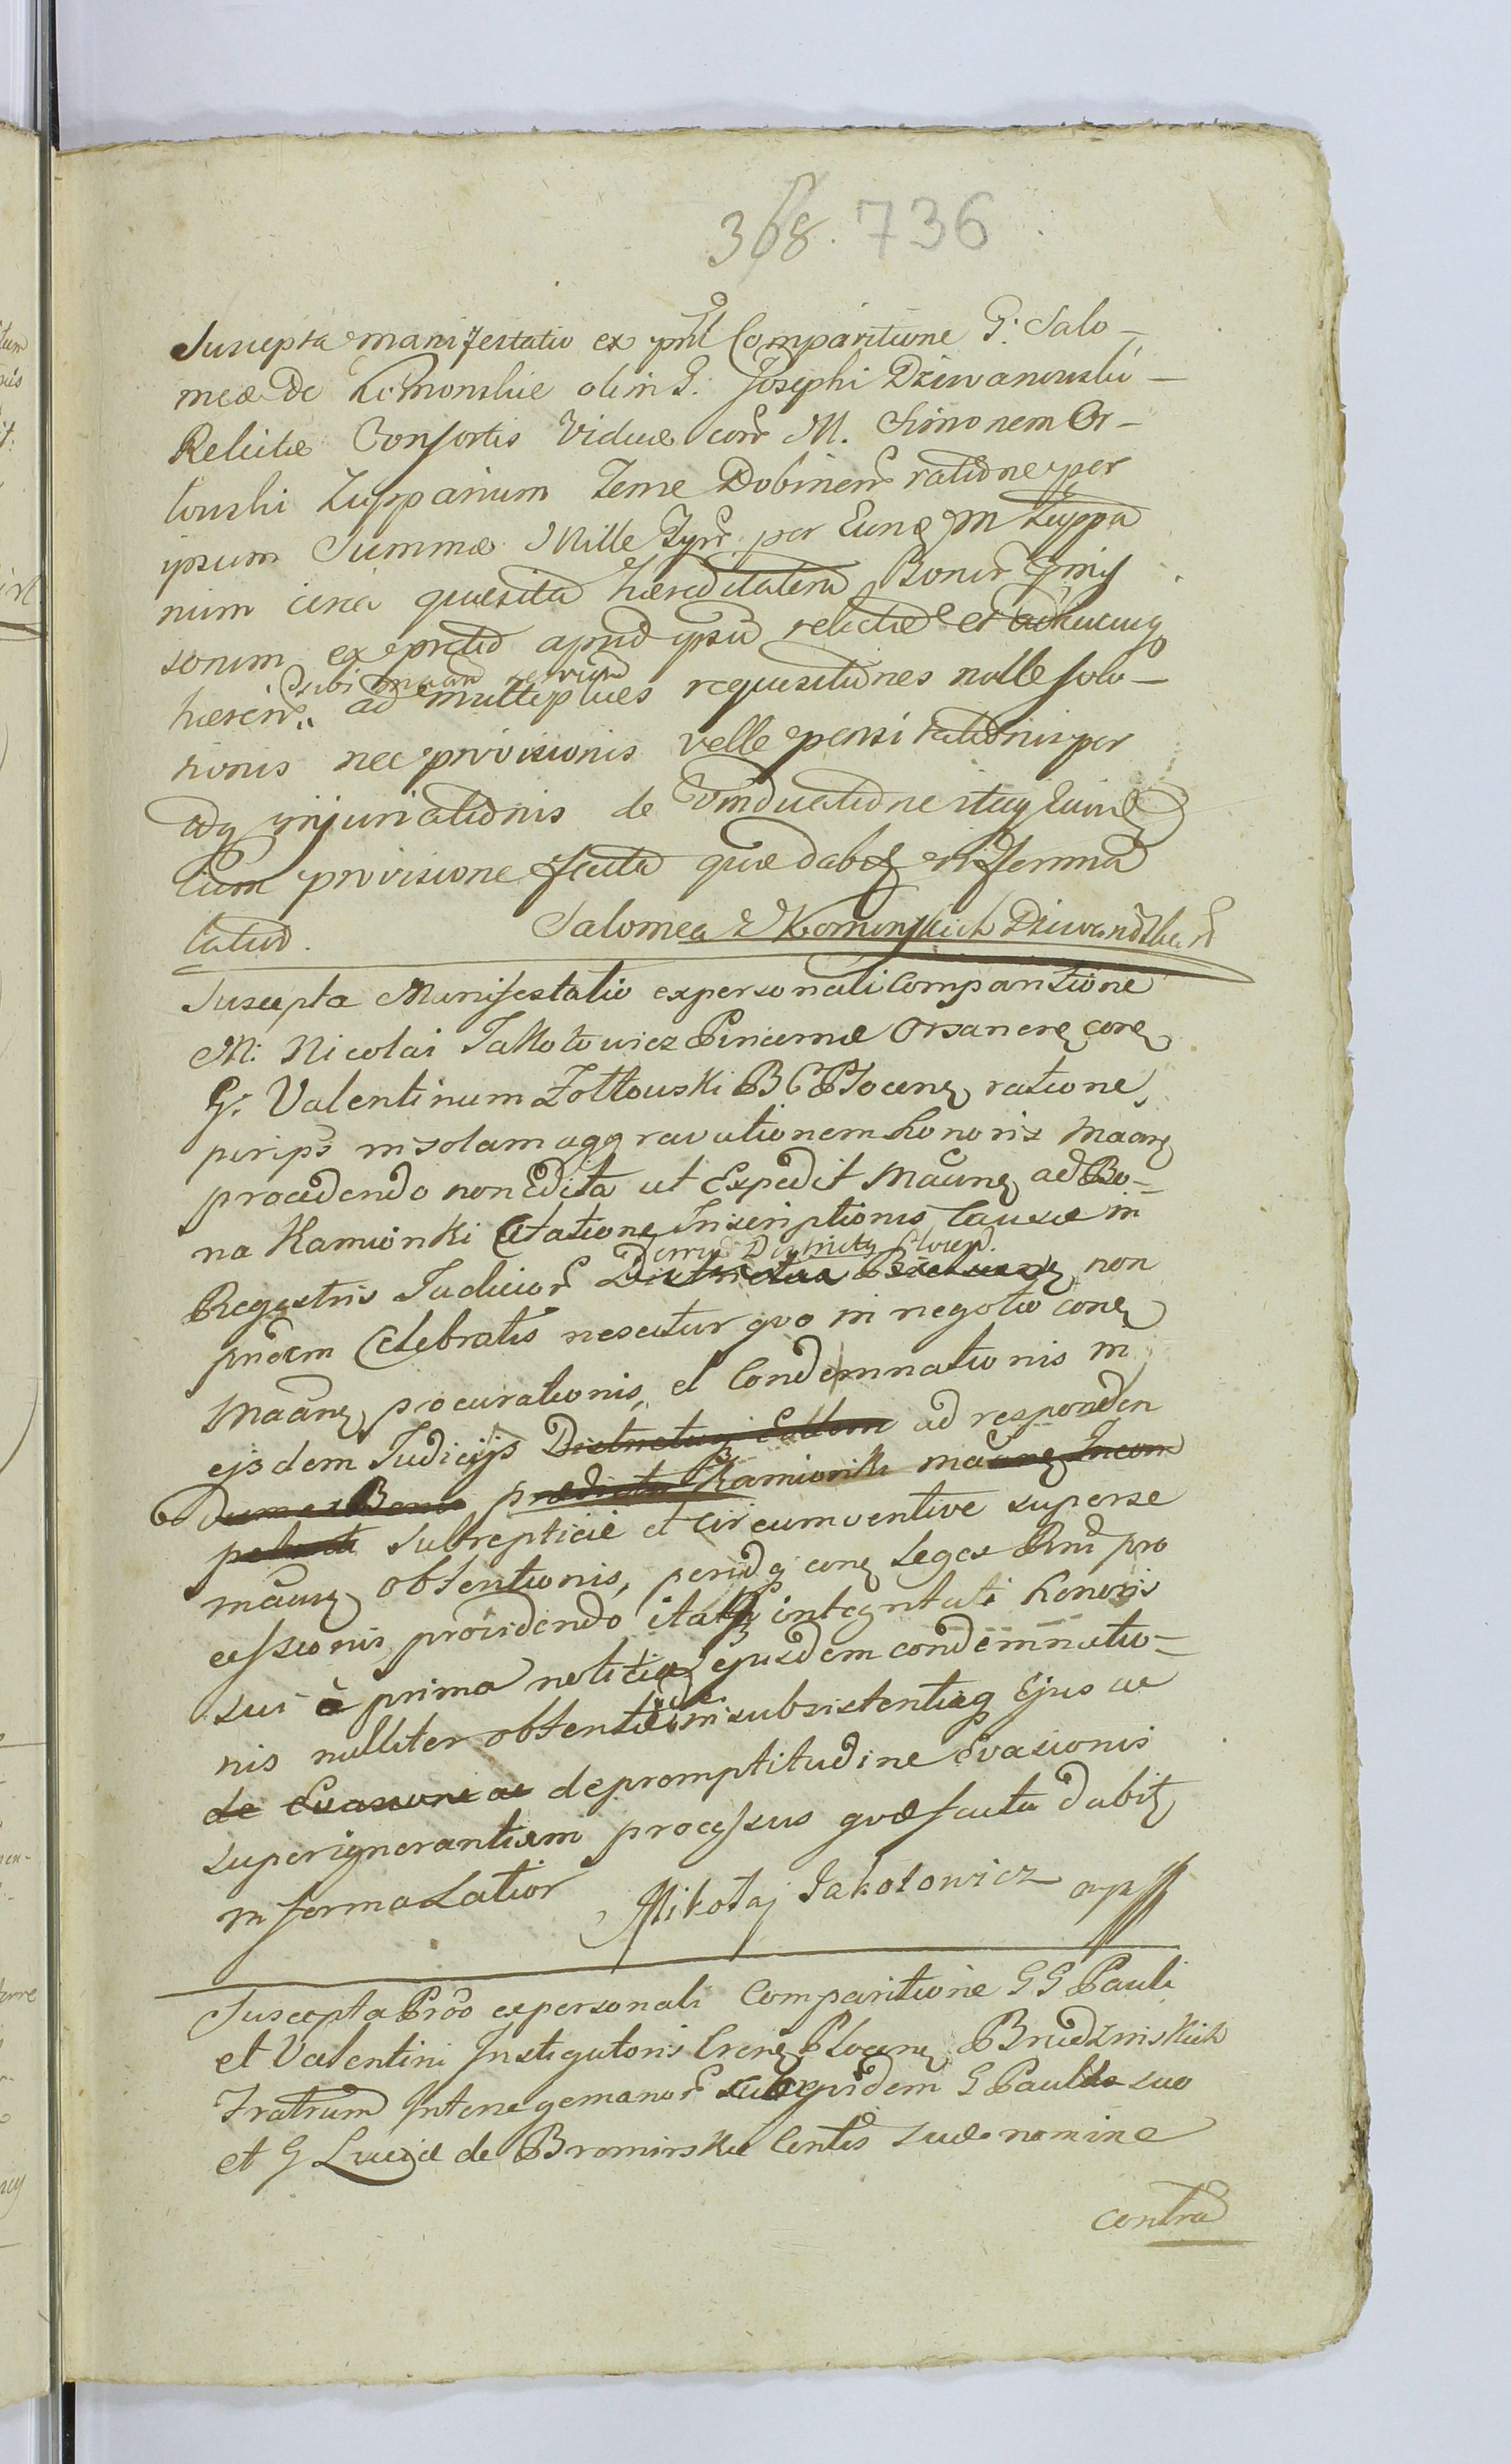 368. 736
Suscepta manifestatio ex pnl Comparitione G. Salo-
meæ De Komonskie olim G. Josephi Dziwanowski
Relictæ Consortis Viduæ con M. Simonem Or-
lowski Zuppanium Terræ Dobrinen ratione per
ipsum Summæ Mille per Eunq in Zuppa
num circa quæsita hæreditatem Bonor
sorum ex apud ipsu relictæ et adhucuq
sibi maan
hæren ad multiplices requisitiones nolle solu-
tionis nec provisionis velle pensitationis per
adq injuriationis de Vinduatione itaq
cum provisione facta quæ dabit in forma
latio.
Salomea z Komonskich Dziwanoska
Suscepta Manifestatio ex personali Comparitione
M: Nicolai Jakotowicz Pincernæ Orsanenę conę
G: Valentinum Zołtowski B C Płocenę ratione
per ips in solam aggravationem honoris maanę
procedendo non Edita ut Expedit maanę ad Bo-
na Kamionki Citatione Inscriptionis Causæ in
Terræ Districtq Plocen
Regestris Judicior Districtus non
pridem Celebratis nescitur quo in negotio conę
maanę procurationis, et Condemnationis in
ejsdem Judicijs Districtus ad responden
Dum ex Bonis prædictis Kamionki maanę Incom
petenti subrepticie et circumventive superse
maanę obtentionis, peridq conę Leges Rni pro
cessionis providendo itaq integritati honoris
sui à prima notitia ejusdem condemnatio-
nis nulliter obtentæ de insubsistentiaq Ejus ac
de Evasione ac de promptitudine Evasionis
super ignorantiam processus quæ facta dabit
in forma Latior Mikołaj Jakotowicz mp
Suscepta Prôo ex personali Comparitione G G Pauli
et Valentini Instigatoris Crenę Plocenę Brudzinskich
Fratrum Interse germanor siquidem G Paulus suo
et G Luciæ de Brominskie Contis suæ nomine
contra